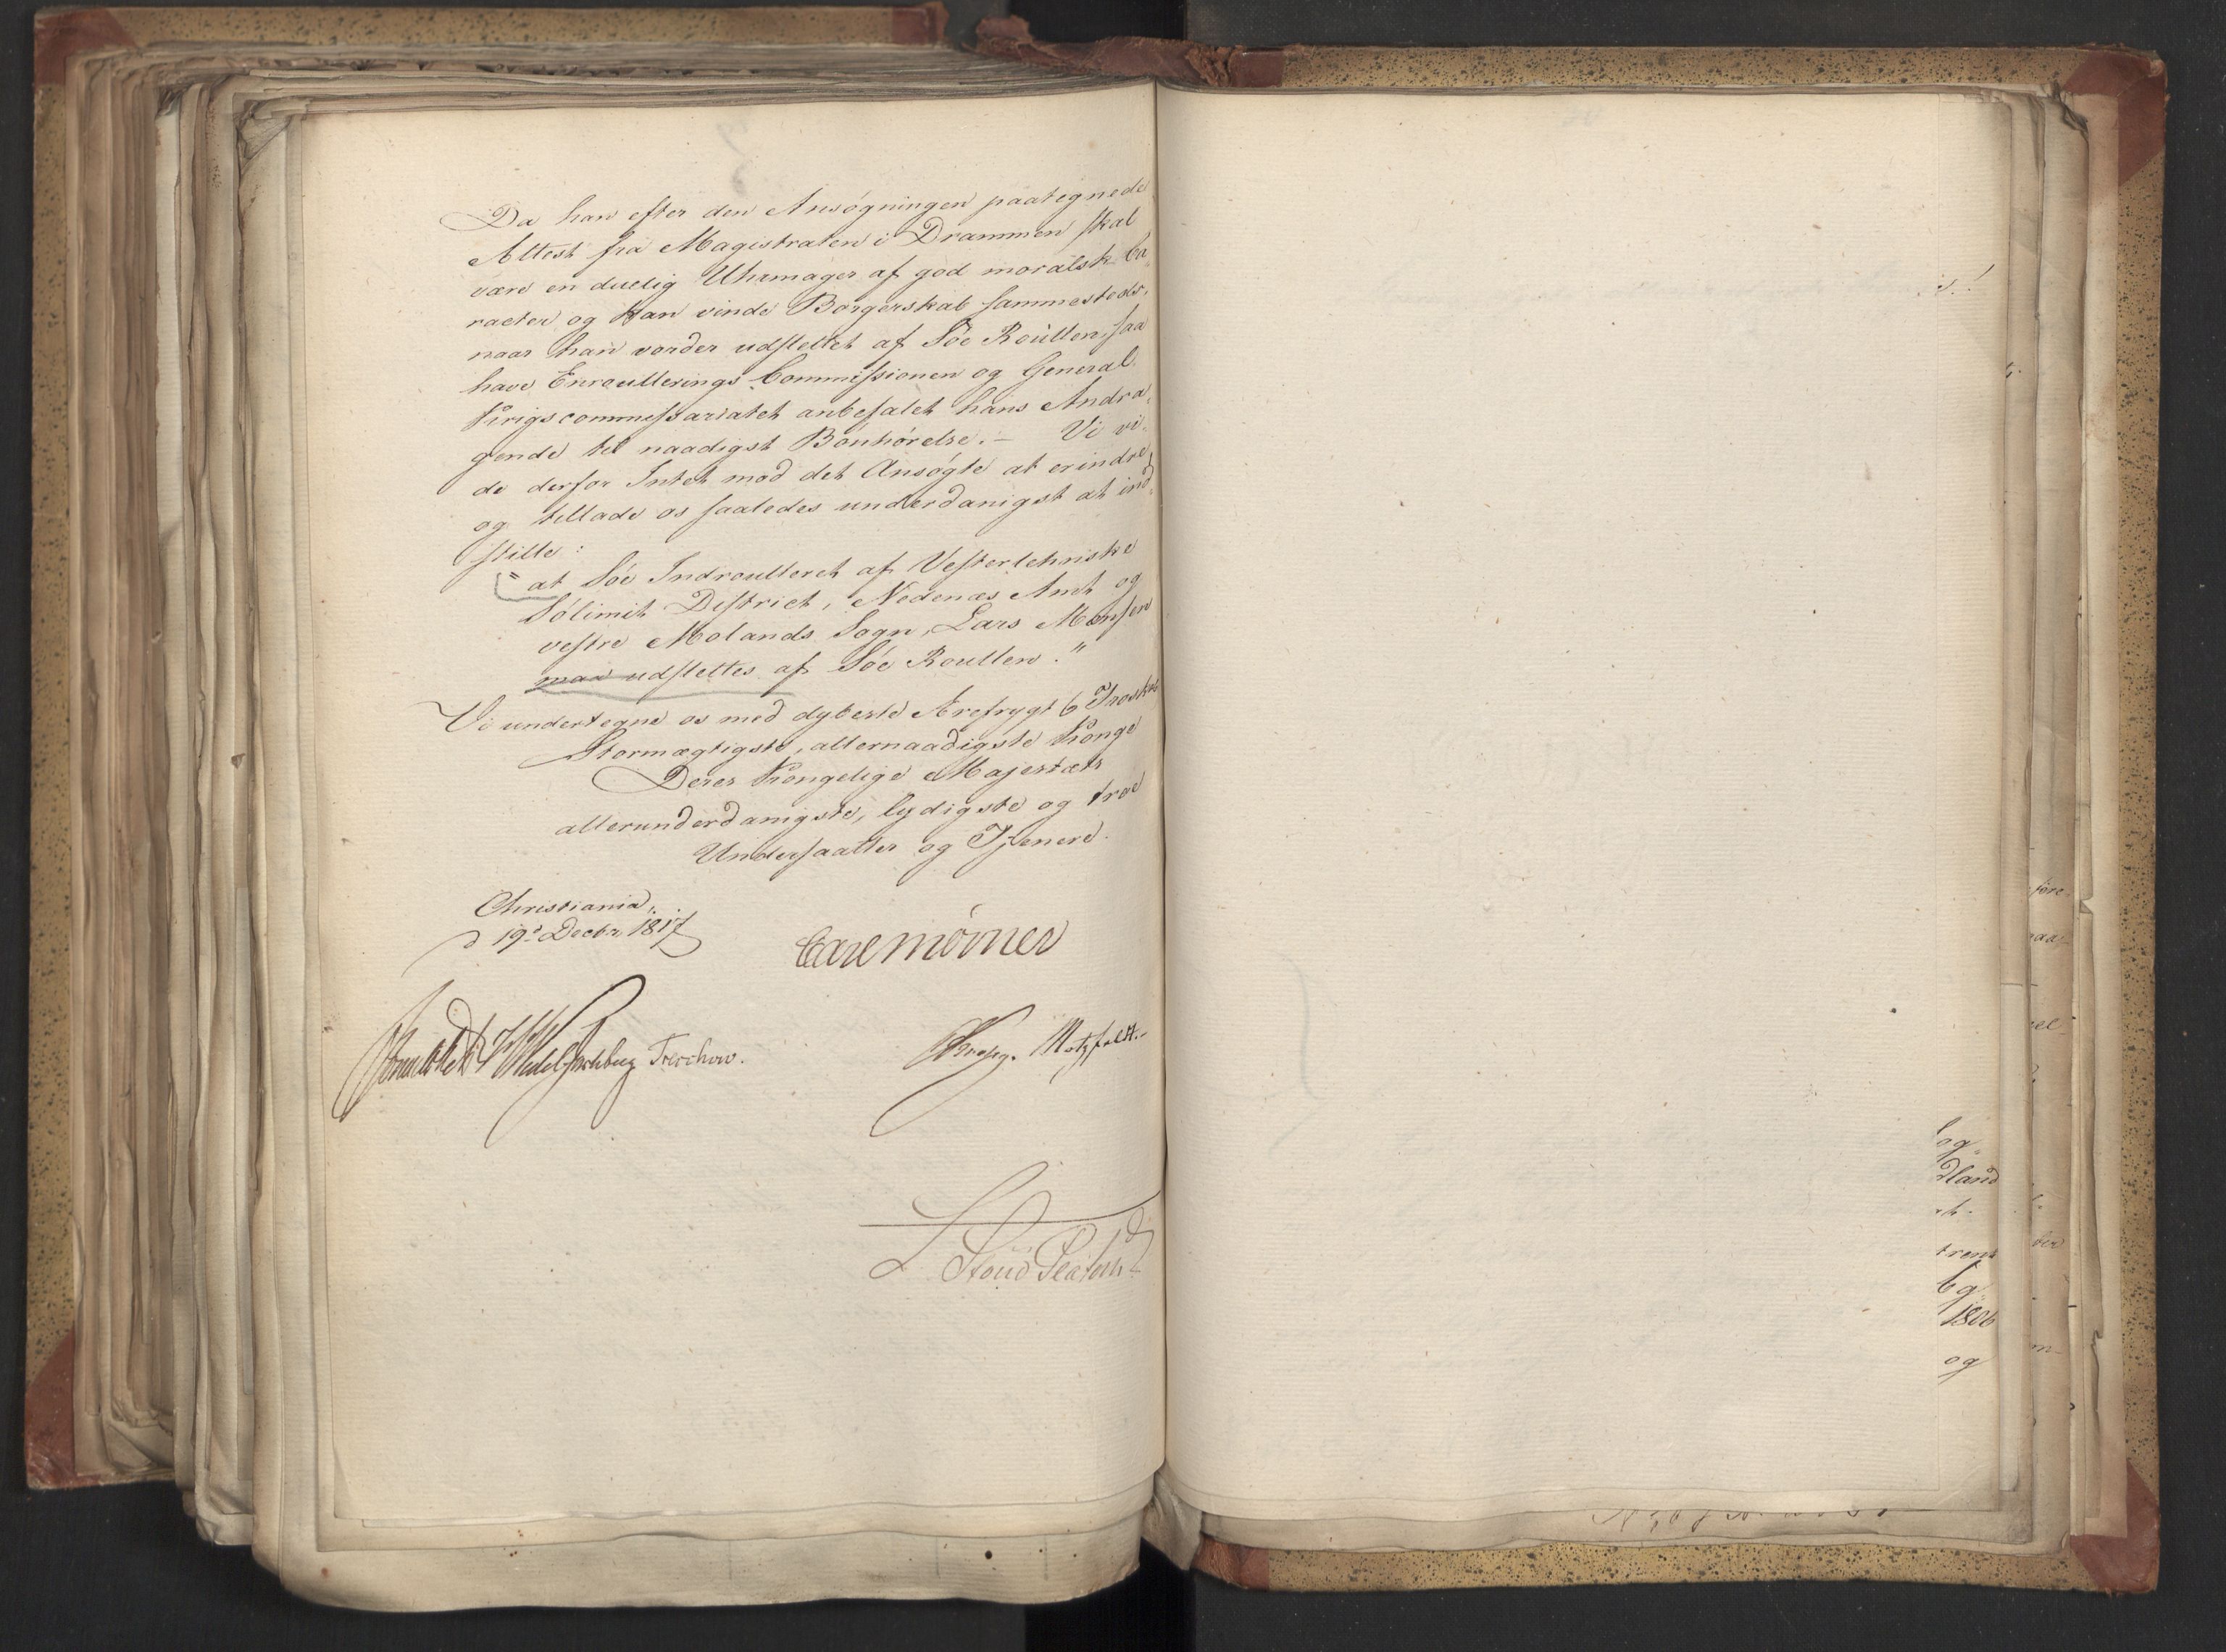 Da han efter den Ansøgningen paategnede
Attest fra Magistraten i Drammen skal
være en duelig Uhrmager af god moralsk Ca
racter og kan vinde Borgerskab sammesteds,
naar han vorder udslettet af Søe Roullen, saa
have Enroullerings Commissionen og General
Krigscommissariatet anbefalet hans Andra,
gende til naadigst Bønhørelse. – Vi vi-
de derfor Intet mod det Ansøgte at erindre,
og tillade os saaledes underdanigst at ind,
stille:
"at Søe Indroulleret af Vesterlehnske
Sølimit District, Nedenæs Amt og
vestre Molands Sogn, Lars Monsen
maa udslettes af Søe Roullen."
Vi undertegne os med dybeste Ærefrygt & Troskab
Stormægtigste, allernaadigste Konge
Deres Kongelige Majestæts
allerunderdanigste, lydigste og troe
Undersaatter og Tjenere.
Christiania,
d 19d Decbr 1817
Carl Mörner
Sommerhielm Wedel Jarlsberg Treschow.
Krogh. Motzfeldt.
Stoud Platou
og
dland
trent
&
1806
og